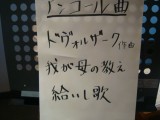 アンコール曲
ドヴォルザーク作曲
我が母の教え
給いし歌